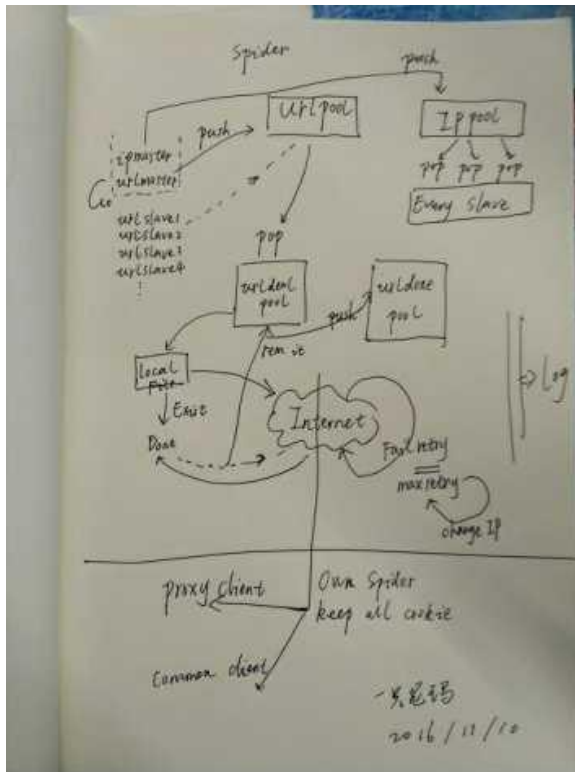 Spider
push
Urlpool
Ippool
push
ipmaster
urlmaster
Go
pop pop pop
Every slave
urlslave1
urlslave2
urlslave3
urlslave4
pop
urldeal
pool
urldone
pool
push
rem it
local
Exist
Internet
Done
Fail retry
max retry
change IP
Log
proxy client
Own Spider
keep all cookie
Common client
一只尼玛
2016/11/10